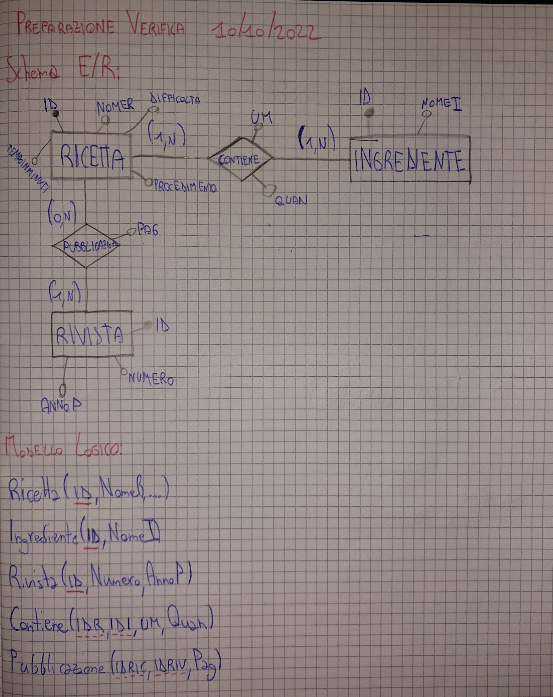 PREPARAZIONE VERIFICA 10/10/2022
Schema E/R:
ID
NOMER
DIFFICOLTA
UM
ID
NOMEI
(1,N)
(1,N)
RICETTA
CONTIENE
INGREDIENTE
TEMPOINMINUTI
PROCEDIMENTO
QUAN
(0,N)
PAG
(1,N)
RIVISTA
ID
NUMERO
ANNOP
MODELLO LOGICO:
Ricetta(ID,NomeR,...)
Ingrediente(ID,NomeI)
Rivista(ID,Numero,AnnoP)
Contiene(IDR,IDI,UM,Quan)
Pubblicazione(IDRIC,IDRIV,Pag)